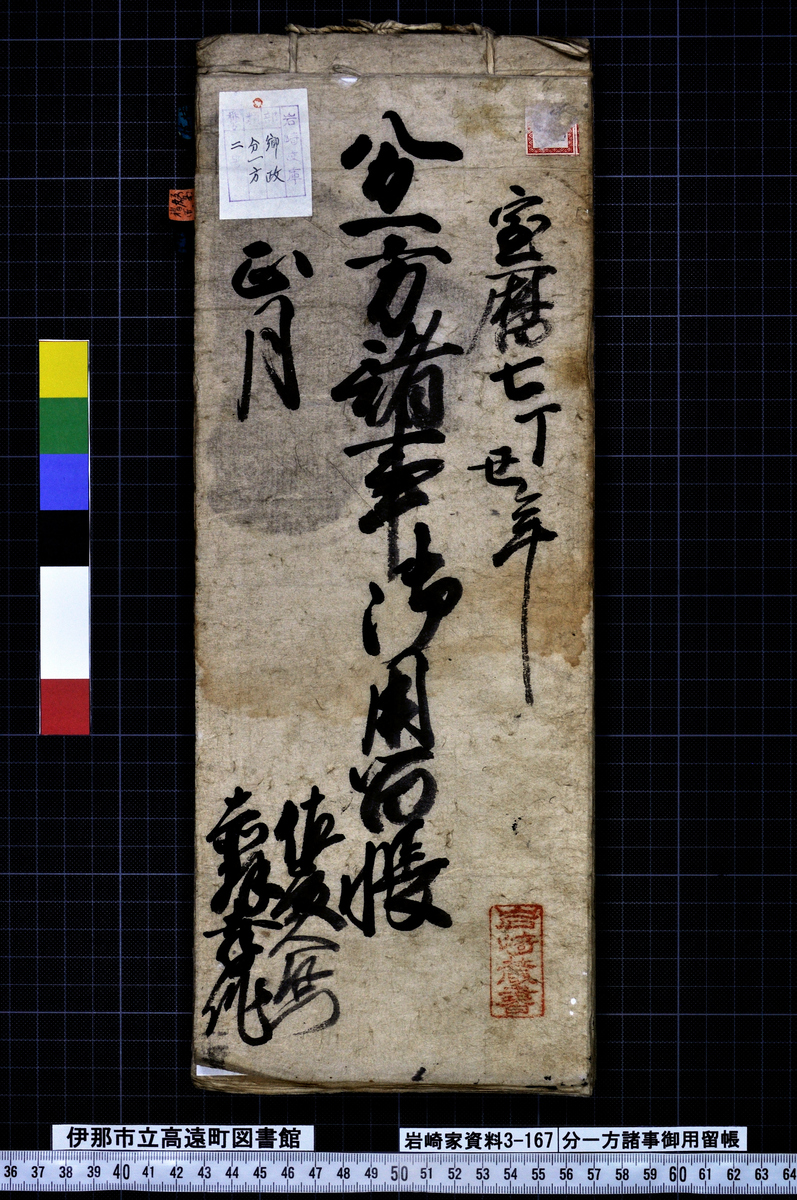 宝暦七丁
丑年
分一方諸事御用留帳
正月
岩崎蔵書
岩崎文庫
郷政
分一方
二
伊那市立高遠町図書館
岩崎家資料3-167
分一方諸事御用留帳
36 37 38 39 40 41 42 43 44 45 46 47 48 49 50 51 52 53 54 55 56 57 58 59 60 61 62 63 64